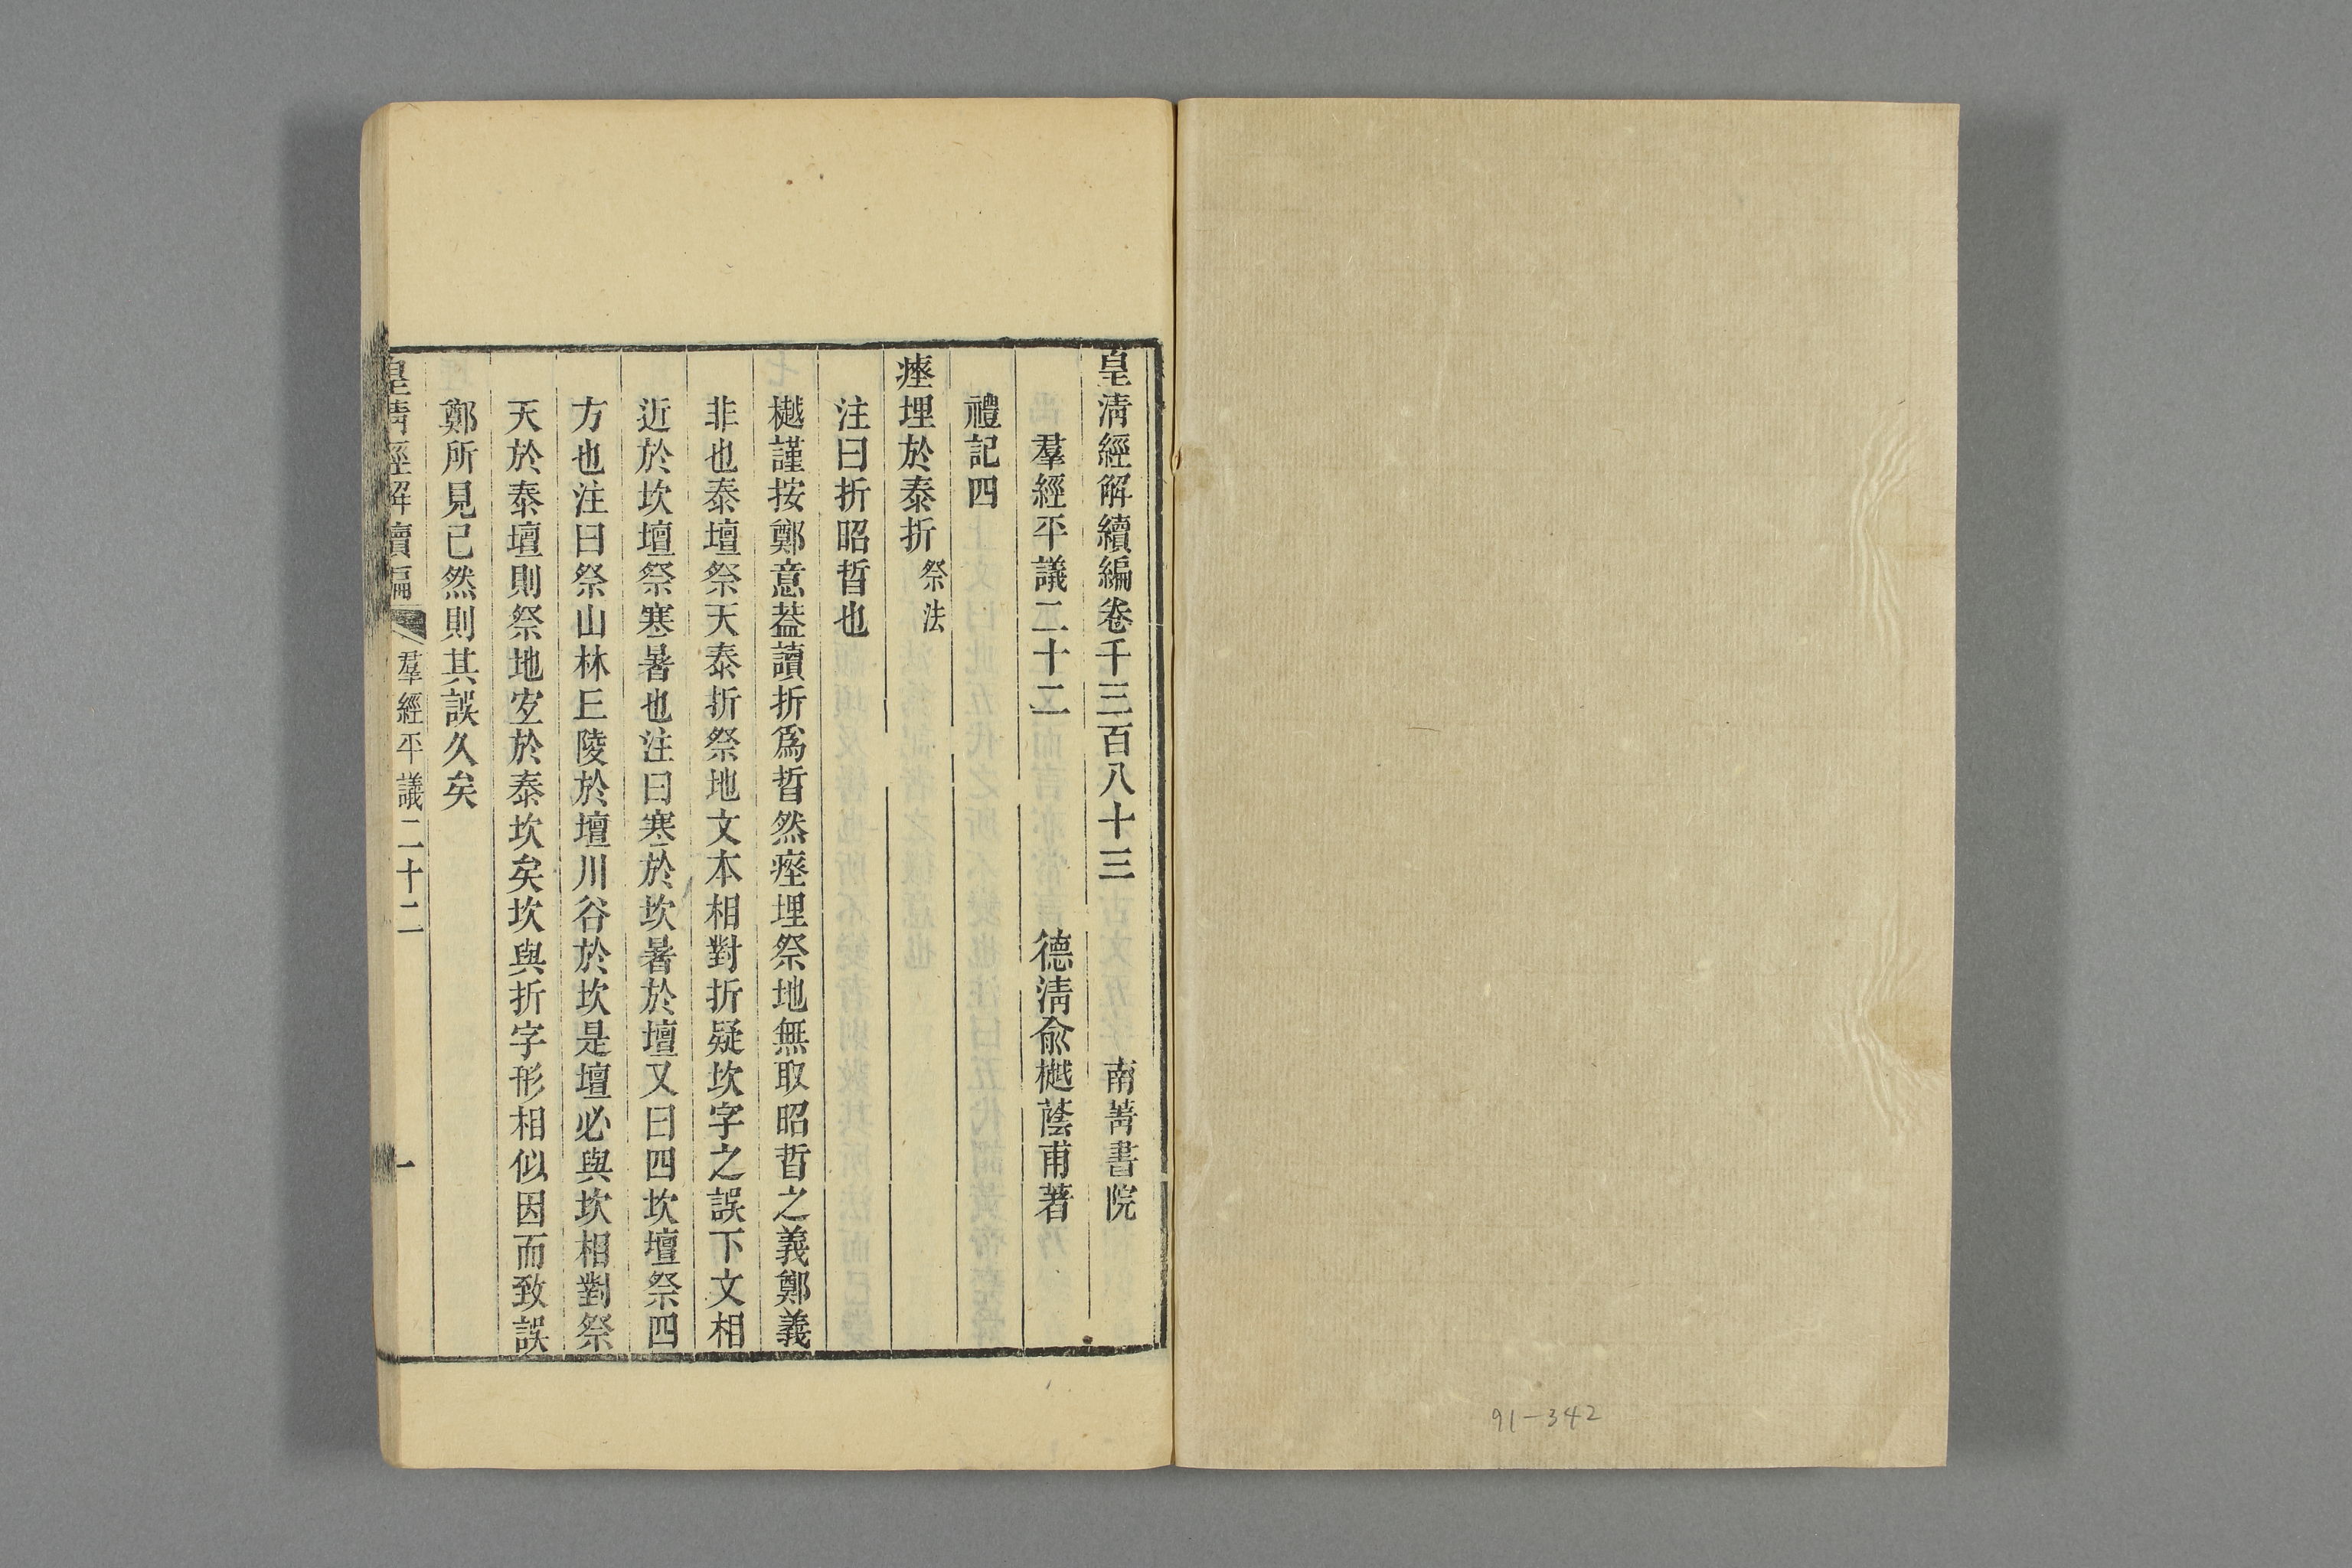 皇清經解續編卷千三百八十三 南菁書院
羣經平議二十二 德清俞樾蔭甫著
禮記四
瘞埋於泰折 祭法
注曰折昭晢也
樾謹按鄭意葢讀折爲晢然瘞埋祭地無取昭晢之義鄭義
非也泰壇祭天泰折祭地文本相對折疑坎字之誤下文相
近於坎壇祭寒暑也注曰寒於坎暑於壇又曰四坎壇祭四
方也注曰祭山林𠀉陵於壇川谷於坎是壇必與坎相對祭
天於泰壇則祭地宐於泰坎矣坎與折字形相似因而致誤
鄭所見已然則其誤久矣
皇清經解續編 羣經平議二十二 一
91-342